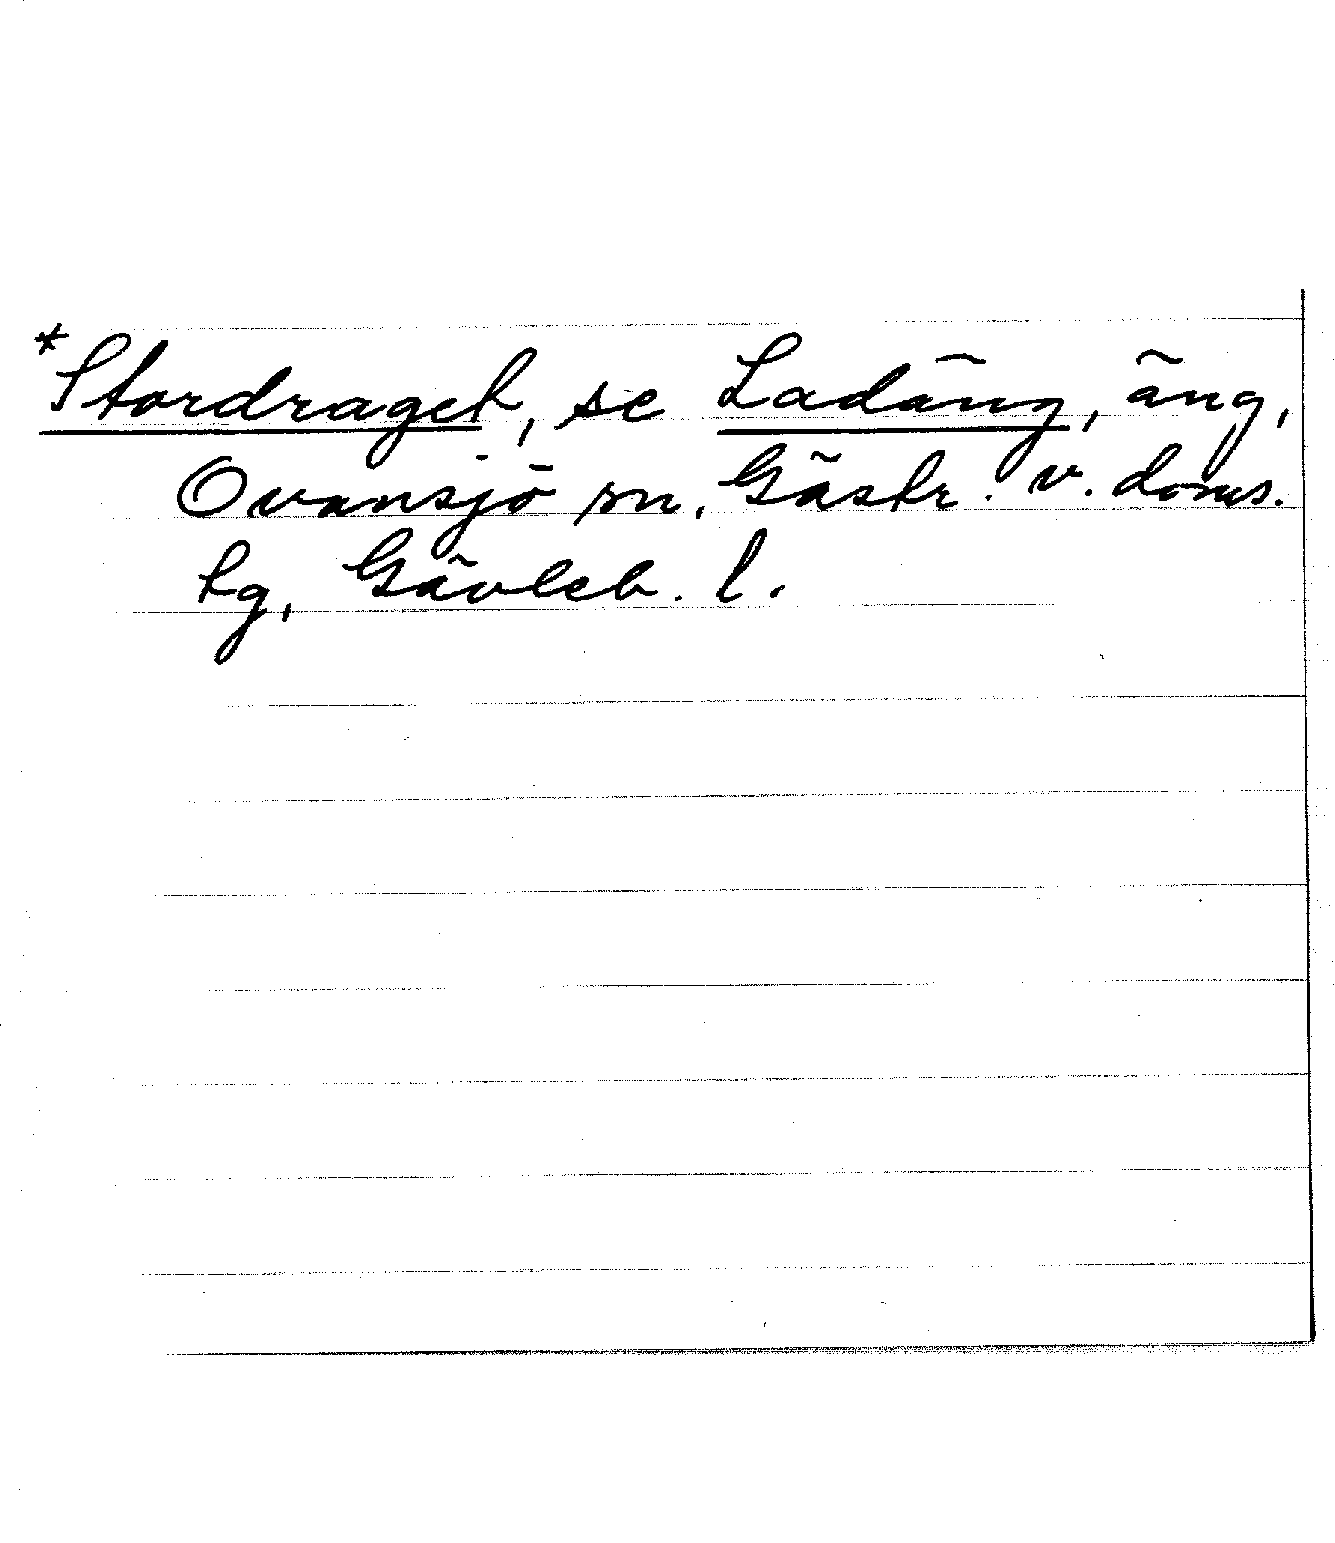 *Stordraget, se Ladäng, äng,
Ovansjö sn, Gästr. v. doms.
tg, Gävleb. l.